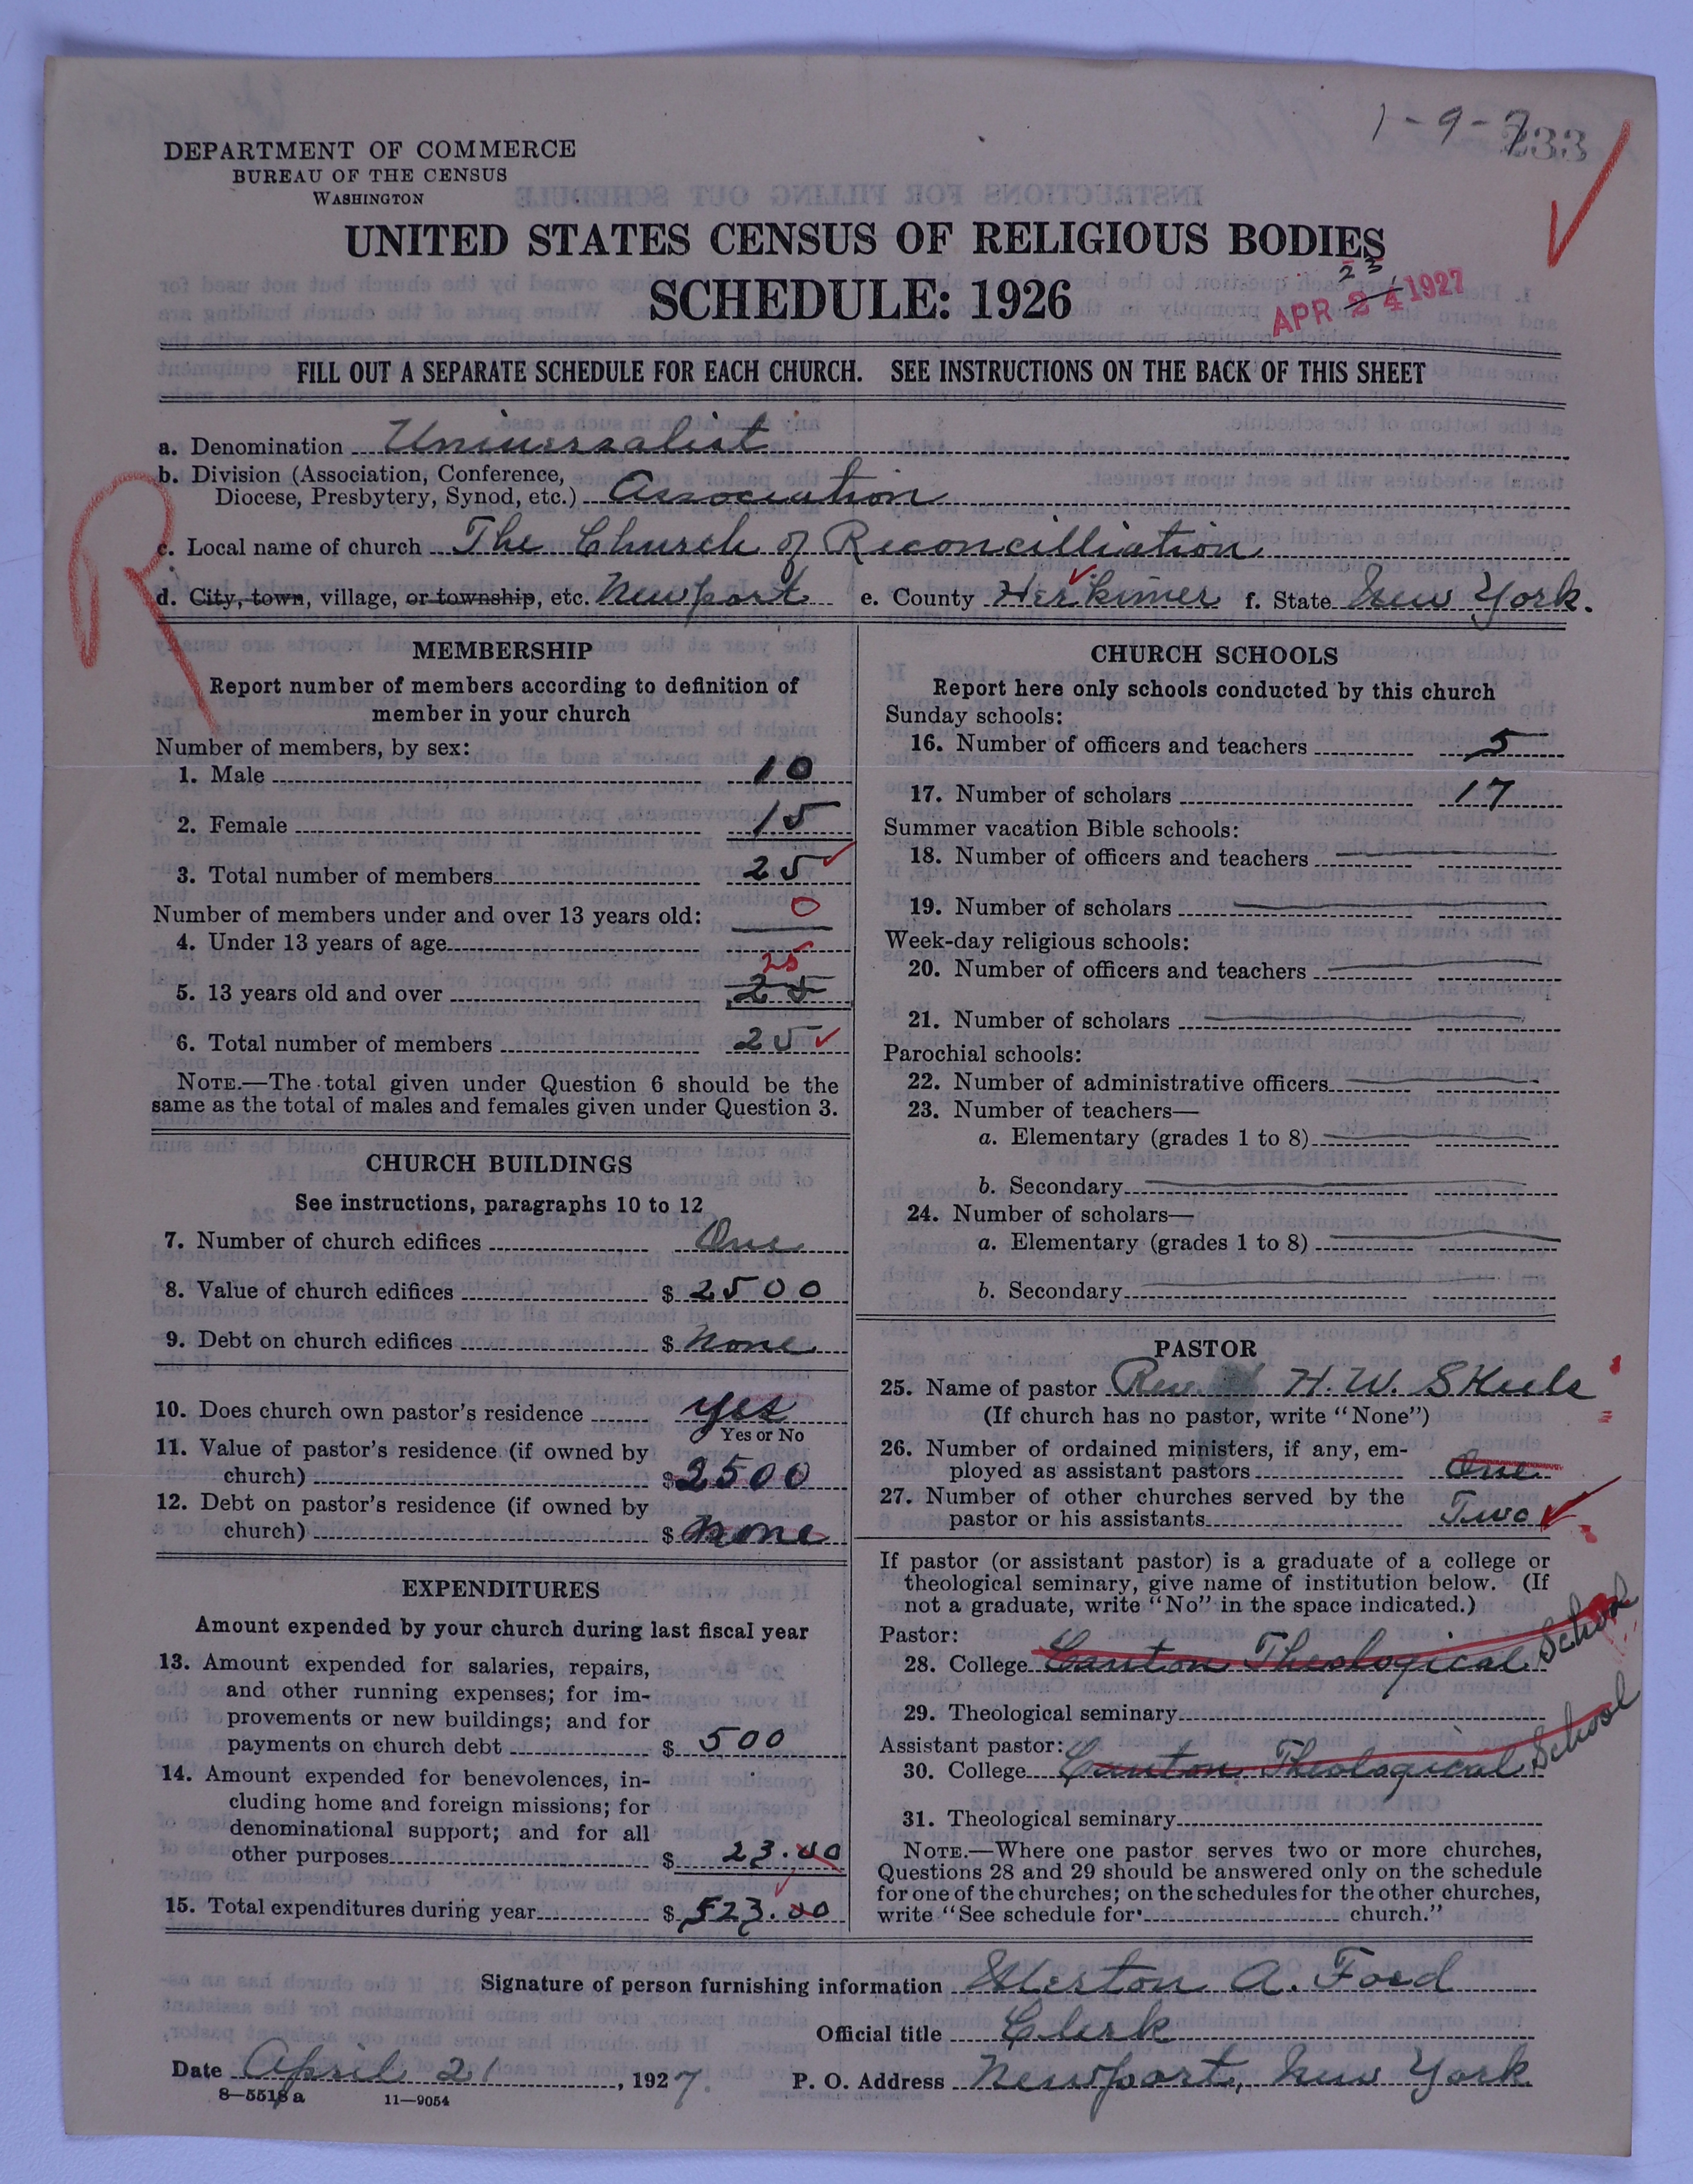 1-9-7
233
DEPARTMENT OF COMMERCE
BUREAU OF THE CENSUS
WASHINGTON
UNITED STATES CENSUS OF RELIGIOUS BODIES
SCHEDULE: 1926
23
APR 24 1927
FILL OUT A SEPARATE SCHEDULE FOR EACH CHURCH. SEE INSTRUCTIONS ON THE BACK OF THIS SHEET
a. Denomination Universalist
b. Division (Association, Conference,
Diocese, Presbytery, Synod, etc.) Association
R
c. Local name of church The Church of Reconcilliation
d. City, town, village, or township, etc. Newport e. County Herkimer f. State New York.
MEMBERSHIP
Report number of members according to definition of
member in your church
Number of members, by sex:
1. Male 10
2. Female 15
3. Total number of members 25
Number of members under and over 13 years old: 0
4. Under 13 years of age
25
5. 13 years old and over 25
6. Total number of members 25
NOTE.—The total given under Question 6 should be the
same as the total of males and females given under Question 3.
CHURCH BUILDINGS
See instructions, paragraphs 10 to 12
7. Number of church edifices One
8. Value of church edifices $ 2500
9. Debt on church edifices $ None
10. Does church own pastor's residence yes
Yes or No
11. Value of pastor's residence (if owned by
church) $ 2500
12. Debt on pastor's residence (if owned by
church) $ None
EXPENDITURES
Amount expended by your church during last fiscal year
13. Amount expended for salaries, repairs,
and other running expenses; for im-
provements or new buildings; and for
payments on church debt $ 500
14. Amount expended for benevolences, in-
cluding home and foreign missions; for
denominational support; and for all
other purposes $ 23.00
15. Total expenditures during year $ 523.00
CHURCH SCHOOLS
Report here only schools conducted by this church
Sunday schools:
16. Number of officers and teachers 5
17. Number of scholars 17
Summer vacation Bible schools:
18. Number of officers and teachers
19. Number of scholars
Week-day religious schools:
20. Number of officers and teachers
21. Number of scholars
Parochial schools:
22. Number of administrative officers
23. Number of teachers—
a. Elementary (grades 1 to 8)
b. Secondary
24. Number of scholars—
a. Elementary (grades 1 to 8)
b. Secondary
PASTOR
25. Name of pastor Rev. H. W. Skeels
(If church has no pastor, write "None")
26. Number of ordained ministers, if any, em-
ployed as assistant pastors One
27. Number of other churches served by the
pastor or his assistants Two
If pastor (or assistant pastor) is a graduate of a college or
theological seminary, give name of institution below. (If
not a graduate, write "No" in the space indicated.)
Pastor:
28. College Canton Theological School
29. Theological seminary
Assistant pastor:
30. College Canton Theological School
31. Theological seminary
NOTE.—Where one pastor serves two or more churches,
Questions 28 and 29 should be answered only on the schedule
for one of the churches; on the schedules for the other churches,
write "See schedule for church."
Signature of person furnishing information A. Ford
Official title Clerk
Date April 21, 1927. P. O. Address Newport, New York
8—5518a 11—9054